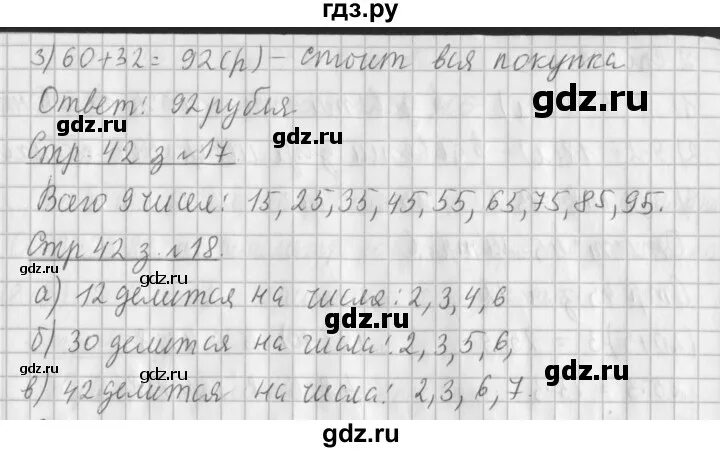 гдз.ру
3) 60+32= 92(р) - стоит вся покупка
gdz.ru
Ответ: 92 рубля
gdz.ru
gdz.ru
Стр. 42 з №17.
gdz.ru
Всего 9 чисел: 15, 25, 35, 45, 55, 65, 75, 85, 95.
gdz.ru
Стр 42 з. №18.
gdz.ru
а) 12 делится на числа: 2, 3, 4, 6
gdz.ru
б) 30 делится на числа: 2, 3, 5, 6,
gdz.ru
в) 42 делится на числа: 2, 3, 6, 7.
gdz.ru
gdz.ru